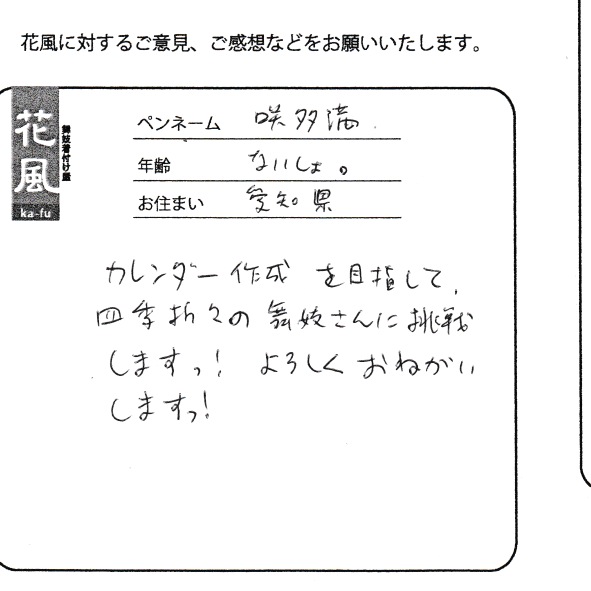 花風に対するご意見、ご感想などをお願いいたします。
花風
舞妓着付け屋
ka-fu
ペンネーム 咲多満
年齢 ないしょ。
お住まい 愛知県
カレンダー作成 を目指して、
四季折々の舞妓さんに挑戦
しますっ! よろしく おねがい
しますっ!